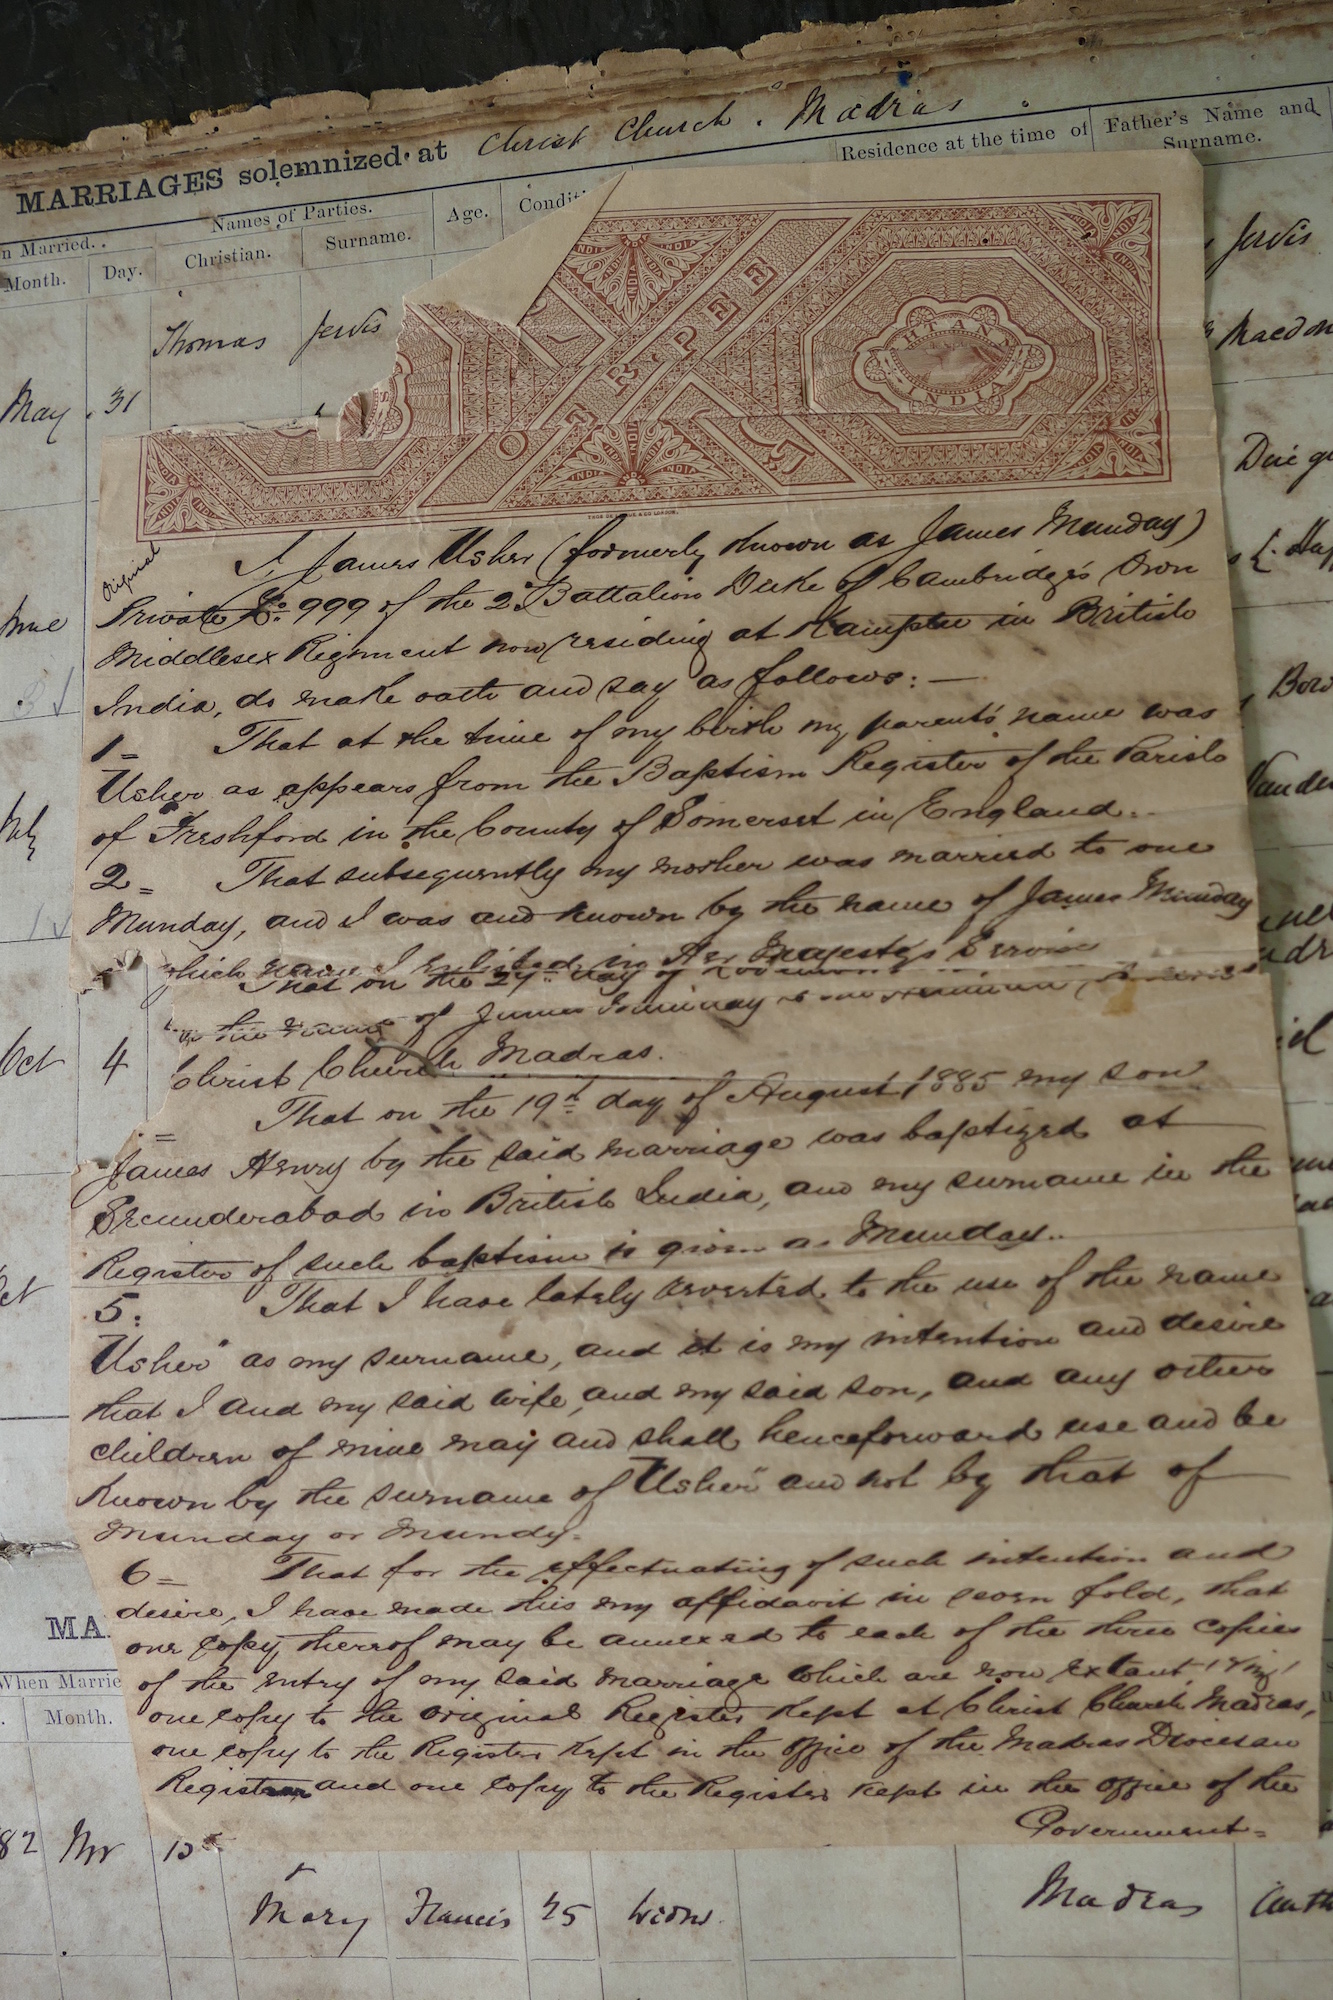 MARRIAGES solemnized at Christ Church. Madras
n Married.
Names of Parties.
Age.
Residence at the time of
Father's Name and
Surname.
Month.
Day.
Christian.
Surname.
Thomas Jervis
Jervis
May 31
INDIA
ONE RUPEE
INDIA
THOS DE LA RUE & CO LONDON.
Original
I, James Usher (formerly known as James Munday)
Private No. 999 of the 2d Battalion Duke of Cambridge's Own
Middlesex Regiment now residing at Kamptee in British
India, do make oath and say as follows: —
1= That at the time of my birth my parents' name was
Usher as appears from the Baptism Register of the Parish
of Freshford in the County of Somerset in England.
2= That subsequently my mother was married to one
Munday, and I was and known by the name of James Munday
which name I enlisted in Her Majesty's Service
That on the 27th day of
in the name of James Munday
Christ Church Madras.
= That on the 19th day of August, 1885 my son
James Henry by the said marriage was baptized at
Secunderabad in British India, and my surname in the
Register of such baptism is given as Munday.
5: That I have lately reverted to the use of the name
Usher" as my surname, and it is my intention and desire
that I and my said wife, and my said son, and any other
children of mine may and shall henceforward use and be
known by the surname of "Usher" and not by that of
Munday or Mundy.
6= That for the effectuating of such intention and
desire, I have made this my affidavit in seven fold, that
one copy thereof may be annexed to each of the three copies
of the entry of my said marriage which are now extant viz
one copy to the original Register kept at Christ Church Madras,
one copy to the Register kept in the office of the Madras Diocesan
Registrar and one copy to the Register kept in the office of the
Government=
Oct 4
When Marrie
Month.
82 Nov 15
Mary Francis 25 Widow Madras